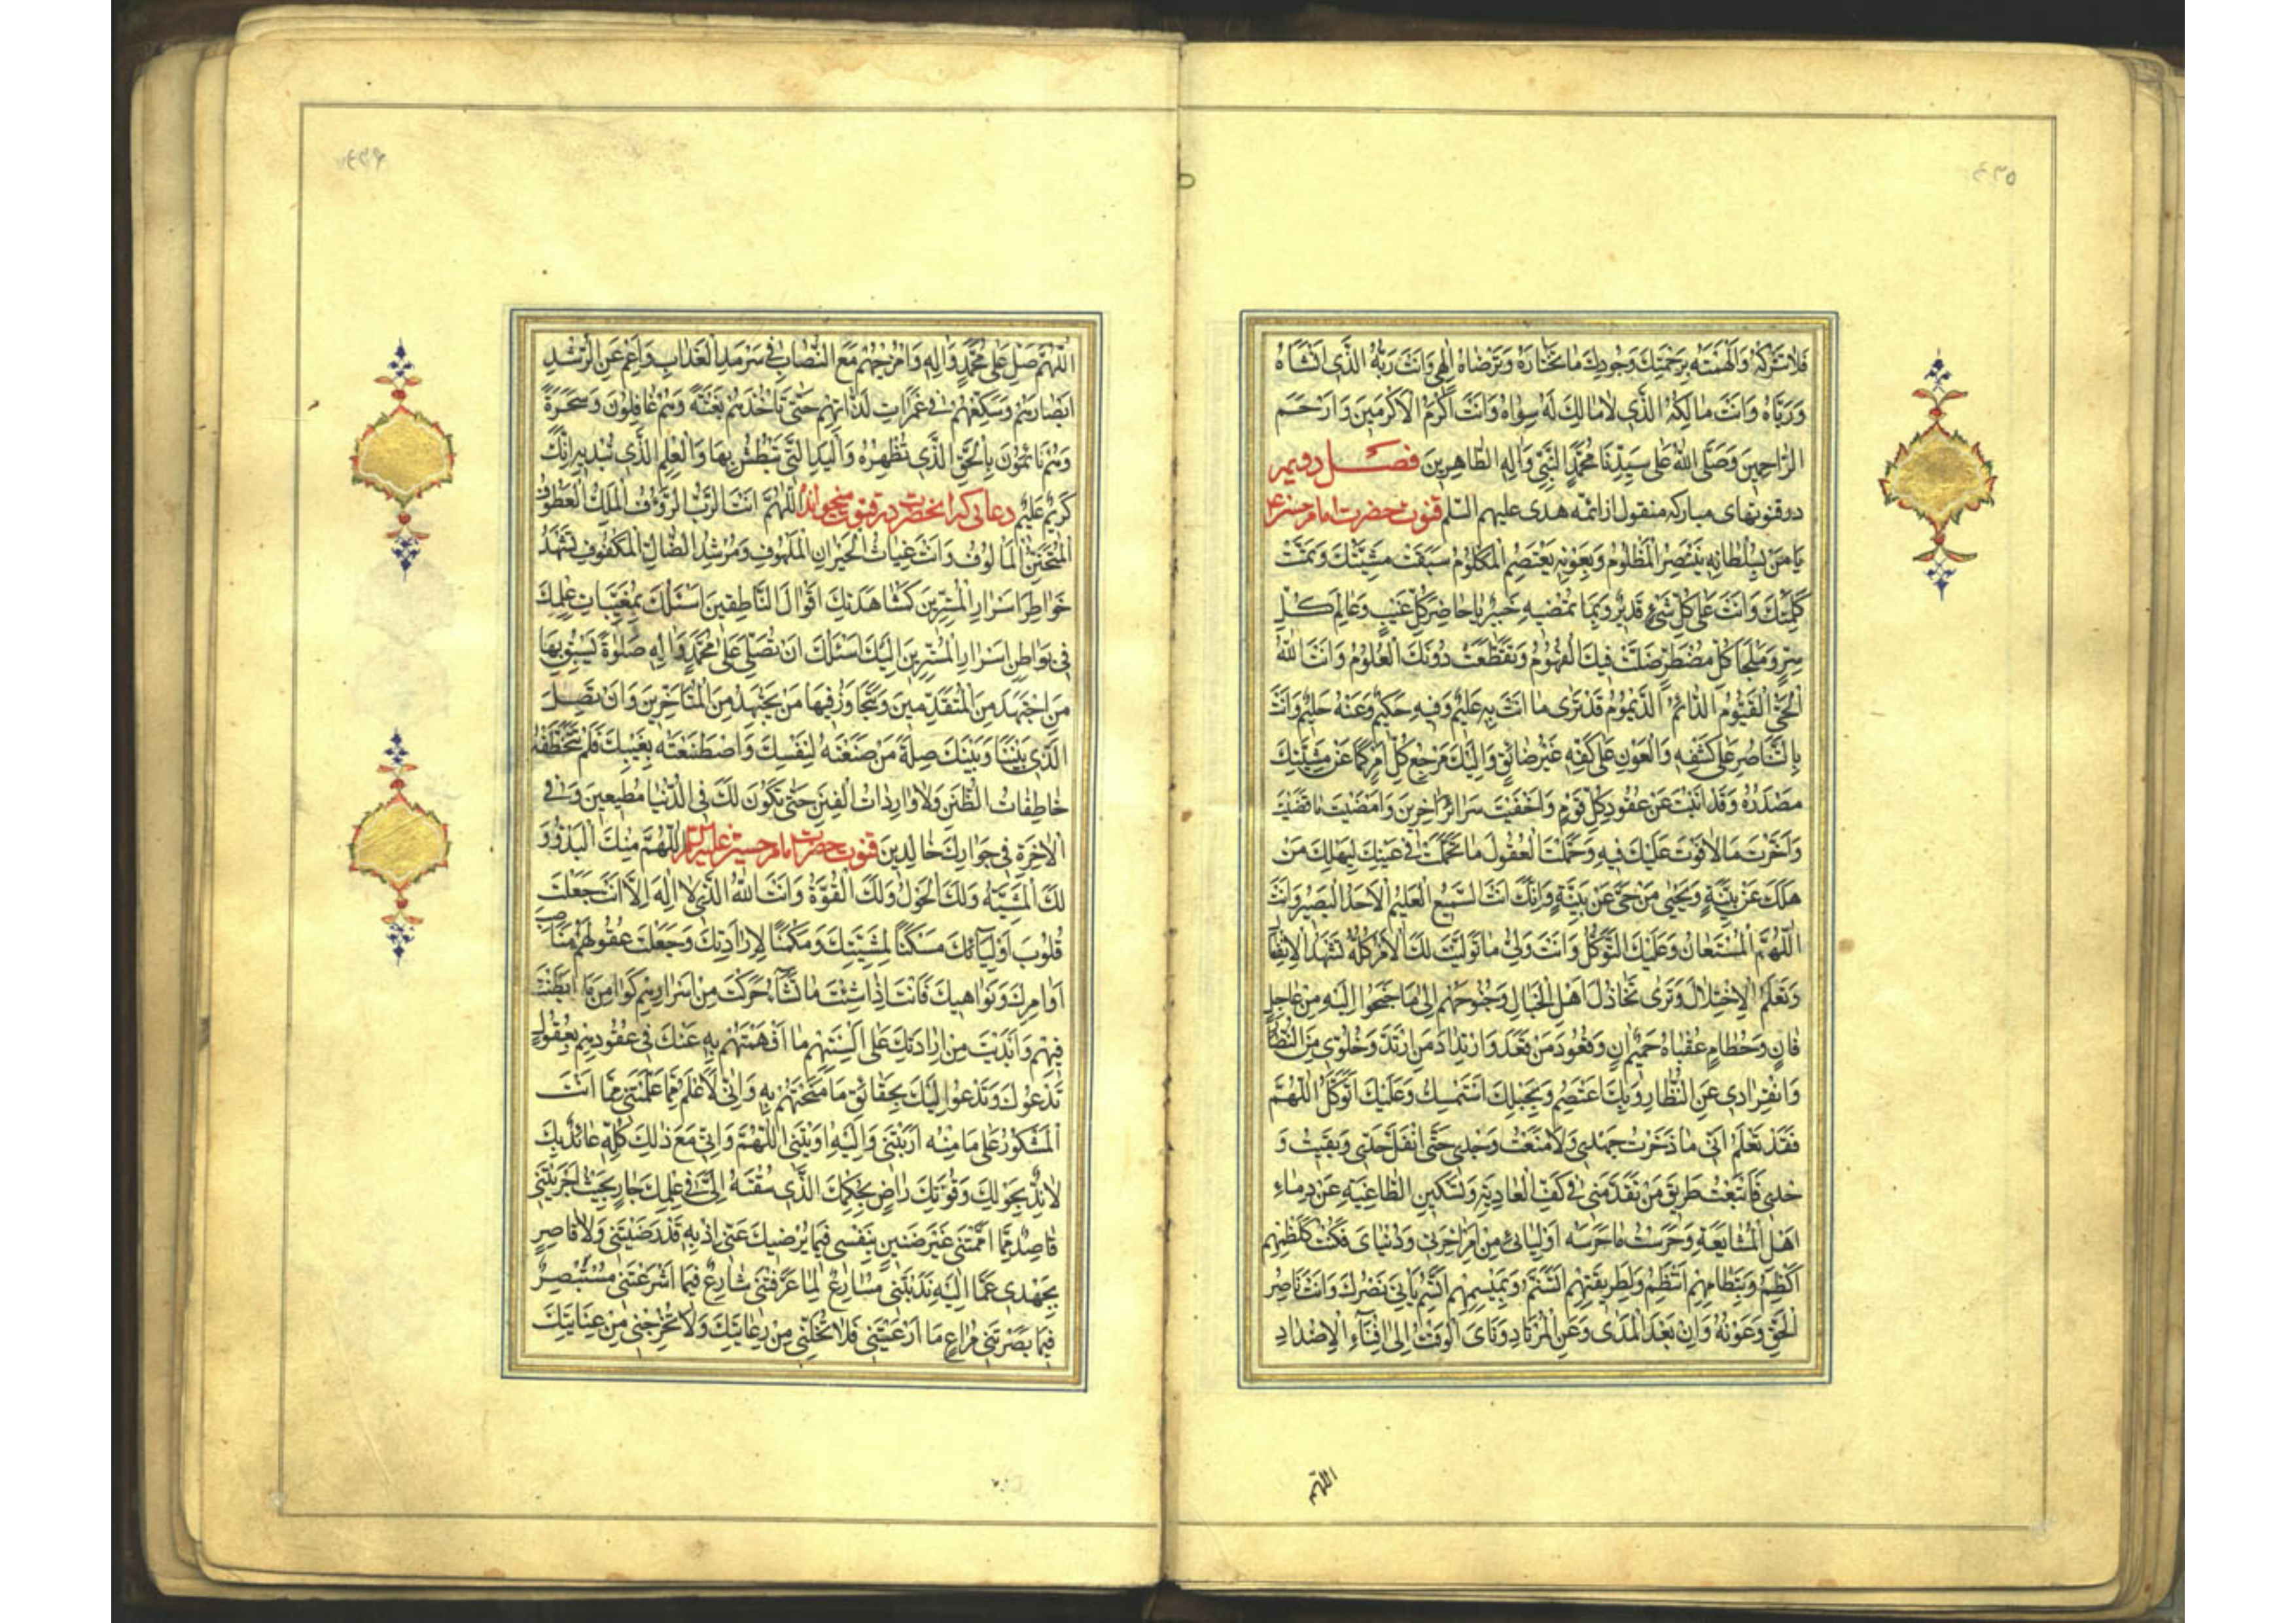 ٤٣٥
فَلا تَتْرُكْهُ وَاَلْهَمْتَهُ بِرَحْمَتِكَ وَجُودِكَ ما تَخْتارُهُ وَتَرْضاهُ اِلهِى وَاَنْتَ رَبُّهُ الَّذى اَنْشَاهُ
وَرَبّاهُ وَاَنْتَ مالِكُهُ الَّذى لا مالِكَ لَهُ سِواهُ وَاَنْتَ اَكْرَمُ الْاَكْرَمينَ وَاَرْحَمُ
الرّاحِمينَ وَصَلَّى اللهُ عَلى سَيِّدِنا مُحَمَّدٍ النَّبِىِّ وَالِهِ الطّاهِرينَ فصل دويم
در قنوتهاى مباركه منقول از ائمّه هدى عليهم السّلم قنوت حضرت امام حسن ع
يا مَنْ بِسُلْطانِهِ يَنْتَصِرُ الْمَظْلُومُ وَبِعَوْنِهِ يَعْتَصِمُ الْمَكْلُومُ سَبَقَتْ مَشِيَّتُكَ وَتَمَّتْ
كَلِمَتُكَ وَاَنْتَ عَلى كُلِّ شَىْءٍ قَديرٌ وَبِما تُمْضيهِ خَبيرٌ يا حاضِرَ كُلِّ غَيْبٍ وَعالِمَ كُلِّ
سِرٍّ وَمَلْجَاَ كُلِّ مُضْطَرٍّ ضَلَّتْ فيكَ الْفُهُومُ وَتَقَطَّعَتْ دُونَكَ الْعُلُومُ وَاَنْتَ اللهُ
الْحَىُّ الْقَيُّومُ الدّائِمُ الدَّيْمُومُ قَدْ تَرى ما اَنْتَ بِهِ عَليمٌ وَفيهِ حَكيمٌ وَعَنْهُ حَليمٌ وَاَنْتَ
بِالتَّناصُرِ عَلى كَشْفِهِ وَالْعَوْنِ عَلى كَفِّهِ غَيْرُ ضائِقٍ وَاِلَيْكَ مَرْجِعُ كُلِّ اَمْرٍ كَما عَنْ مَشِيَّتِكَ
مَصْدَرُهُ وَقَدْ اَبَنْتَ عَنْ عُقُودِ كُلِّ قَوْمٍ وَاَخْفَيْتَ سَرائِرَ اخَرينَ وَاَمْضَيْتَ ما قَضَيْتَ
وَاَخَّرْتَ ما لا فَوْتَ عَلَيْكَ فيهِ وَحَمَلْتَ الْعُقُولَ ما تَحَمَّلَتْ فى غَيْبِكَ لِيَهْلِكَ مَنْ
هَلَكَ عَنْ بَيِّنَةٍ وَيَحْيى مَنْ حَىَّ عَنْ بَيِّنَةٍ وَاِنَّكَ اَنْتَ السَّميعُ الْعَليمُ الْاَحَدُ الْبَصيرُ وَاَنْتَ
اللّهُمَّ الْمُسْتَعانُ وَعَلَيْكَ التَّوَكُّلُ وَاَنْتَ وَلِىُّ ما تَوَلَّيْتَ لَكَ الْاَمْرُ كُلُّهُ تَشْهَدُ الْاِنْفِعالَ
وَتَعْلَمُ الْاِخْتِلالَ وَتَرى تَخاذُلَ اَهْلِ الْخَبالِ وَجُنُوحَهُمْ اِلى ما جَنَحُوا اِلَيْهِ مِنْ عاجِلٍ
فانٍ وَحُطامٍ عُقْباهُ حَميمٌ انٍ وَقُعُودَ مَنْ قَعَدَ وَارْتِدادَ مَنِ ارْتَدَّ وَخُلُوّى مِنَ النُّصّارِ
وَانْفِرادى عَنِ الظُّهّارِ وَبِكَ اَعْتَصِمُ وَبِحَبْلِكَ اَسْتَمْسِكُ وَعَلَيْكَ اَتَوَكَّلُ اللّهُمَّ
فَقَدْ تَعْلَمُ اَنّى ما ذَخَرْتُ جَهْدى وَلا مَنَعْتُ وَجْدى حَتَّى انْفَلَّ حَدّى وَبَقيتُ وَ
حْدى فَاتَّبَعْتُ طَريقَ مَنْ تَقَدَّمَنى فى كَفِّ الْعادِيَةِ وَتَسْكينِ الطّاغِيَةِ عَنْ دِماءِ
اَهْلِ الْمُشايَعَةِ وَحَرَسْتُ ما حَرَسَهُ اَوْلِيائى مِنْ اَمْرِ اخِرَتى وَدُنْياىَ فَكُنْتُ كَكَظْمِهِمْ
اَكْظِمُ وَبِنِظامِهِمْ اَنْتَظِمُ وَلِطَريقَتِهِمْ اَتَسَنَّمُ وَبِمَيْسَمِهِمْ اَتَّسِمُ حَتّى يَاْتِىَ نَصْرُكَ وَاَنْتَ ناصِرُ
الْحَقِّ وَعَوْنُهُ وَاِنْ بَعُدَ الْمَدى وَعَنِ الْمُرْتادِ وَنَاىَ الْوَقْتُ اِلى اِفْناءِ الْاَضْدادِ
اللّهم
٤٣٦
اللّهُمَّ صَلِّ عَلى مُحَمَّدٍ وَالِهِ وَامْزُجْهُمْ مَعَ النُّصّابِ فى سَرْمَدِ الْعَذابِ وَاَعْمِ عَنِ الرُّشْدِ
اَبْصارَهُمْ وَسَكِّعْهُمْ فى غَمَراتِ لَذّاتِهِمْ حَتّى تَاْخُذَهُمْ بَغْتَةً وَهُمْ غافِلُونَ وَسَحَرَةً
وَهُمْ نائِمُونَ بِالْحَقِّ الَّذى تُظْهِرُهُ وَالْيَدِ الَّتى تَبْطِشُ بِها وَالْعِلْمِ الَّذى تُبْديهِ اِنَّكَ
كَريمٌ عَليمٌ دعائى كه انحضرت در قنوت ميخواند اللّهُمَّ اَنْتَ الرَّبُّ الرَّؤُفُ الْمَلِكُ الْعَطُوفُ
الْمُتَحَنِّنُ الْمَاْلُوفُ وَاَنْتَ غِياثُ الْحَيْرانِ الْمَلْهُوفِ وَمُرْشِدُ الضّالِّ الْمَكْفُوفِ تَشْهَدُ
خَواطِرَ اَسْرارِ الْمُسِرّينَ كَمُشاهَدَتِكَ اَقْوالَ النّاطِقينَ اَسْئَلُكَ بِمُغَيَّباتِ عِلْمِكَ
فى بَواطِنِ اَسْرارِ الْمُسِرّينَ اِلَيْكَ اَسْئَلُكَ اَنْ تُصَلِّىَ عَلى مُحَمَّدٍ وَالِهِ صَلوةً يَسْبِقُ بِها
مَنِ اجْتَهَدَ مِنَ الْمُتَقَدِّمينَ وَيَتَجاوَزُ فيها مَنْ يَجْتَهِدُ مِنَ الْمُتَاَخِّرينَ وَاَنْ تَصِلَ
الَّذى بَيْنَنا وَبَيْنَكَ صِلَةَ مَنْ صَنَعْتَهُ لِنَفْسِكَ وَاصْطَنَعْتَهُ بِغَيْبِكَ فَلَمْ تَتَخَطَّفْهُ
خاطِفاتُ الظُّنَنِ وَلا وارِداتُ الْفِتَنِ حَتّى نَكُونَ لَكَ فى الدُّنْيا مُطيعينَ وَفى
الْاخِرَةِ فى جِوارِكَ خالِدينَ قنوت حضرت امام حسين عليه السلم اللّهُمَّ مِنْكَ الْبَدْؤُ وَ
لَكَ الْمَشِيَّةُ وَلَكَ الْحَوْلُ وَلَكَ الْقُوَّةُ وَاَنْتَ اللهُ الَّذى لا اِلهَ اِلاّ اَنْتَ جَعَلْتَ
قُلُوبَ اَوْلِيائِكَ مَسْكَنًا لِمَشِيَّتِكَ وَمَكْمَنًا لِاِرادَتِكَ وَجَعَلْتَ عُقُولَهُمْ مَناصِبَ
اَوامِرِكَ وَنَواهيكَ فَاَنْتَ اِذا شِئْتَ ما تَشاءُ حَرَّكْتَ مِنْ اَسْرارِهِمْ كَوامِنَ ما اَبْطَنْتَ
فيهِمْ وَاَبْدَيْتَ مِنْ اِرادَتِكَ عَلى اَلْسِنَتِهِمْ ما اَفْهَمْتَهُمْ بِهِ عَنْكَ فى عُقُودِهِمْ بِعُقُولٍ
تَدْعُوكَ وَتَدْعُوا اِلَيْكَ بِحَقائِقِ ما مَنَحْتَهُمْ بِهِ وَاِنّى لَاَعْلَمُ مِمّا عَلَّمْتَنى مِمّا اَنْتَ
الْمَشْكُورُ عَلى ما مِنْهُ اَرَيْتَنى وَاِلَيْهِ اوَيْتَنى اللّهُمَّ وَاِنّى مَعَ ذلِكَ كُلِّهِ عائِذٌ بِكَ
لائِذٌ بِحَوْلِكَ وَقُوَّتِكَ راضٍ بِحُكْمِكَ الَّذى سُقْتَهُ اِلَىَّ فى عِلْمِكَ جارٍ بِحَيْثُ اَجْرَيْتَنى
قاصِدٌ مّا اَمَّمْتَنى غَيْرُ ضَنينٍ بِنَفْسى فيما يُرْضيكَ عَنّى اِذْ بِهِ قَدْ رَضَّيْتَنى وَلا قاصِرٍ
بِجَهْدى عَمّا اِلَيْهِ نَدَبْتَنى مُسارِعٌ لِما عَرَّفْتَنى شارِعٌ فيما اَشْرَعْتَنى مُسْتَبْصِرٌ
فيما بَصَّرْتَنى مُراعٍ ما اَرْعَيْتَنى فَلا تُخْلِنى مِنْ رِعايَتِكَ وَلا تُخْرِجْنى مِنْ عِنايَتِكَ